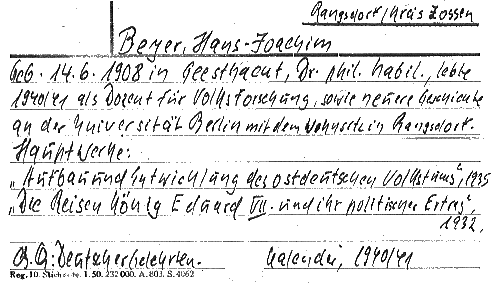 Rangsdorf/Kreis Zossen
Beyer, Hans-Joachim
Geb. 14.6.1908 in Geesthacht, Dr. phil. habil., lebte
1940/41 als Dozent für Volksforschung, sowie neuere Geschichte
an der Universität Berlin mit dem Wohnsitz in Rangsdorf.
Hauptwerke:
„Aufbau und Entwicklung des ostdeutschen Volkstums", 1935
„Die Reisen König Eduard VII. und ihr politischer Ertrag",
1932,
Deutscher Gelehrten. Kalender, 1940/41
Reg. 10. 1. 50. 232 000. A. 803. S. 4062